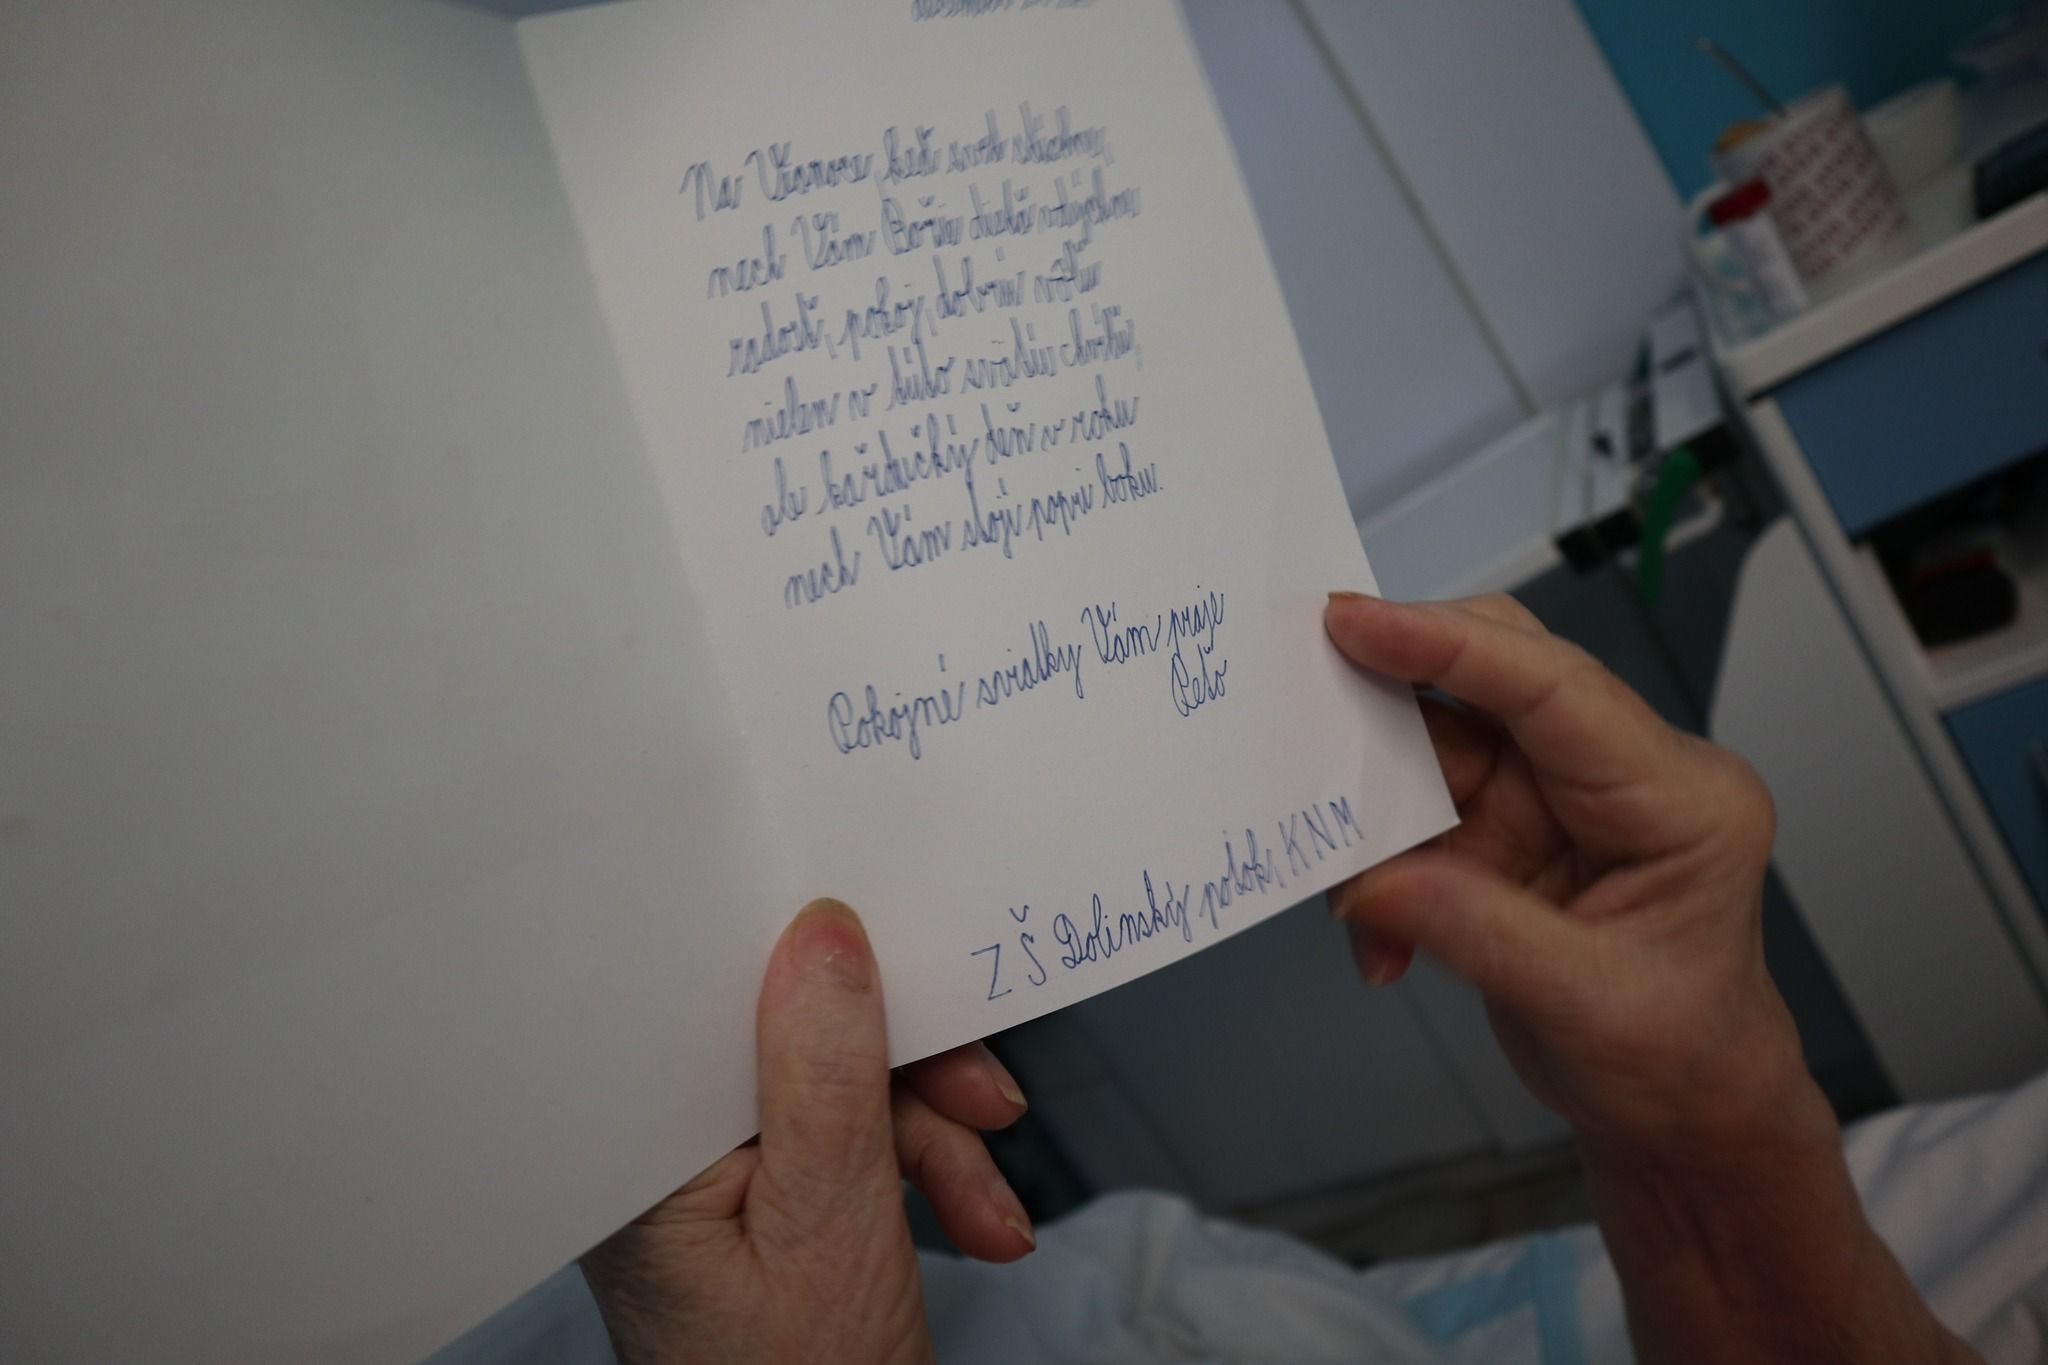 Na Vianoce, keď svet stíchne,
nech Vám Božie dieťa vdýchne
radosť, pokoj, dobrú vôľu
nielen v túto svätú chvíľu,
ale každučký deň v roku
nech Vám stojí popri boku.
Pokojné sviatky Vám praje
Peťo
ZŠ Dolinský potok, KNM